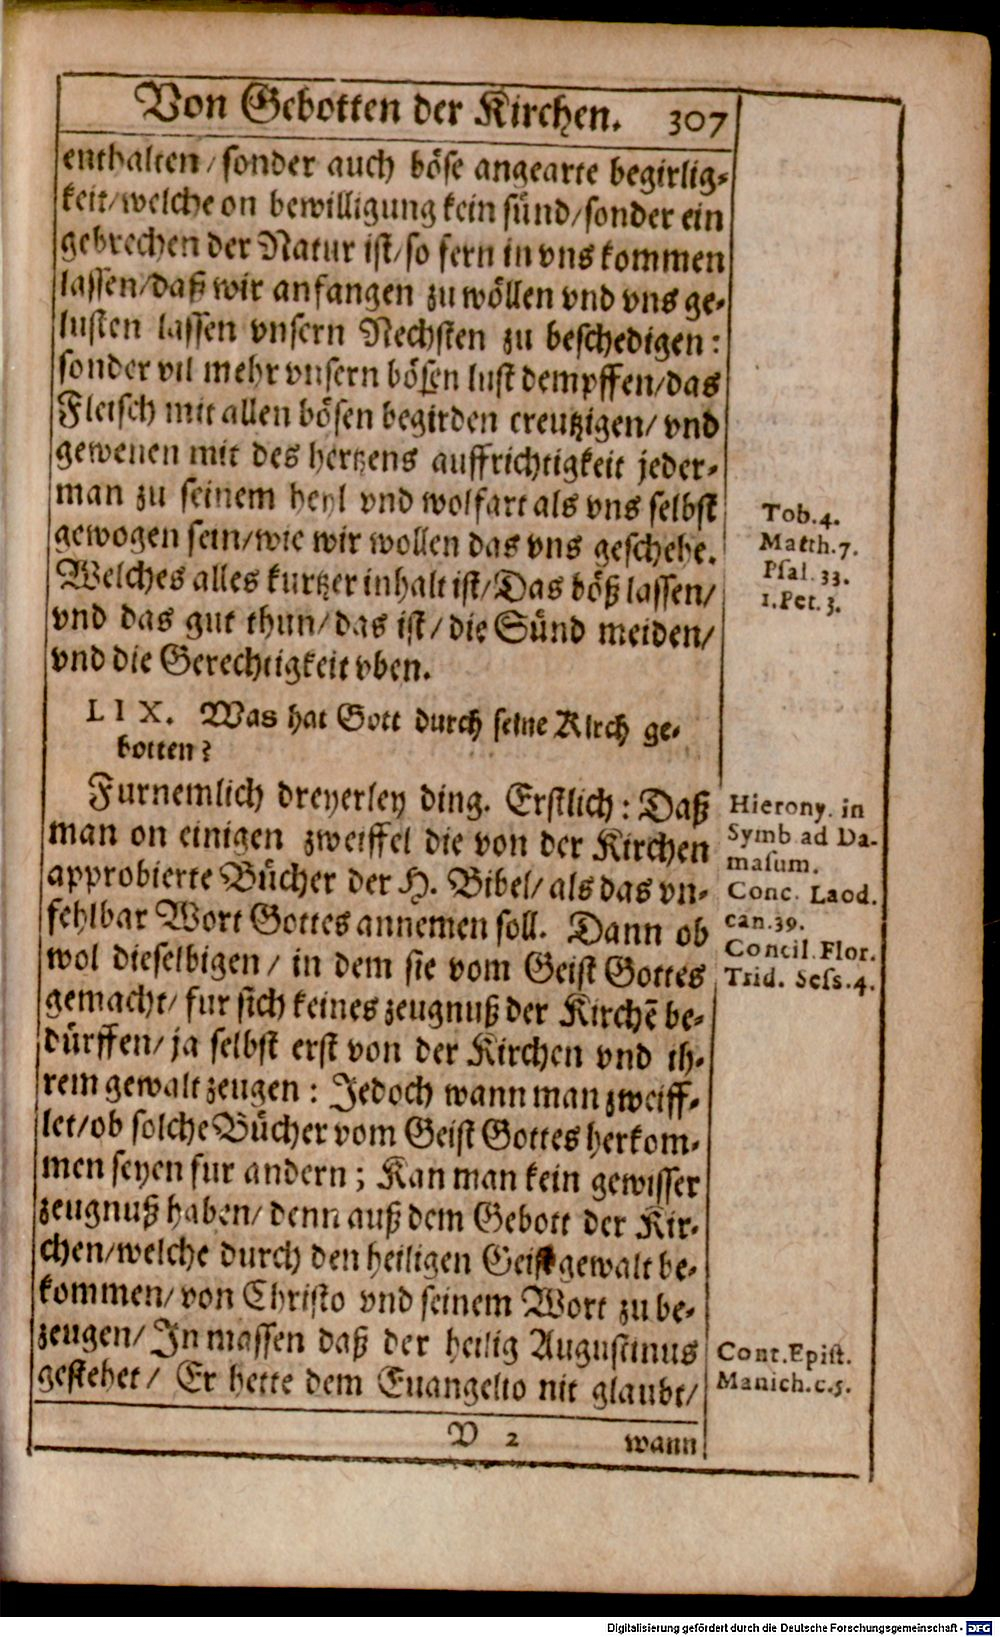 Von Gebotten der Kirchen. 307
enthalten/ sonder auch böse angearte begirlig-
keit/ welche on bewilligung kein sünd/ sonder ein
gebrechen der Natur ist/ so fern in vns kommen
lassen/ daß wir anfangen zu wöllen vnd vns ge-
lusten lassen vnsern Nechsten zu beschedigen:
sonder vil mehr vnsern bösen lust dempffen/ das
Fleisch mit allen bösen begirden creutzigen/ vnd
gewenen mit des hertzens auffrichtigkeit jeder-
man zu seinem heyl vnd wolfart als vns selbst
gewogen sein/ wie wir wollen das vns geschehe.
Welches alles kurtzer inhalt ist/ Das böß lassen/
vnd das gut thun/ das ist/ die Sünd meiden/
vnd die Gerechtigkeit vben.
Tob. 4.
Matth. 7.
Psal. 33.
1. Pet. 3.
LIX. Was hat Gott durch seine Kirch ge-
botten?
Furnemlich dreyerley ding. Erstlich: Daß
man on einigen zweiffel die von der Kirchen
approbierte Bücher der H. Bibel/ als das vn-
fehlbar Wort Gottes annemen soll. Dann ob
wol dieselbigen/ in dem sie vom Geist Gottes
gemacht/ fur sich keines zeugnuß der Kirchē be-
dürffen/ ja selbst erst von der Kirchen vnd ih-
rem gewalt zeugen: Jedoch wann man zweiff-
let/ ob solche Bücher vom Geist Gottes herkom-
men seyen fur andern; Kan man kein gewisser
zeugnuß haben/ denn auß dem Gebott der Kir-
chen/ welche durch den heiligen Geist gewalt be-
kommen/ von Christo vnd seinem Wort zu be-
zeugen/ In massen daß der heilig Augustinus
gestehet/ Er hette dem Euangelio nit glaubt/
Hierony. in
Symb. ad Da-
masum.
Conc. Laod.
can. 39.
Concil. Flor.
Trid. Sess. 4.
Cont. Epist.
Manich. c. 5.
V 2 wann
Digitalisierung gefördert durch die Deutsche Forschungsgemeinschaft - DFG